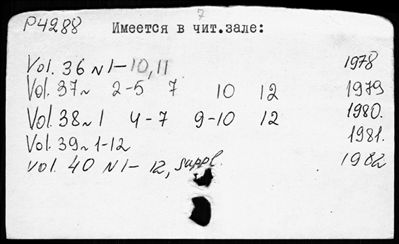 P4288 Имеется в чит.зале:
Vol. 36 N 1-10,11 1978
Vol. 37 N 2-5 7 10 12 1979
Vol. 38 N 1 4-7 9-10 12 1980.
Vol. 39 N 1-12 1981.
Vol. 40 N 1-12, suppl. 1982